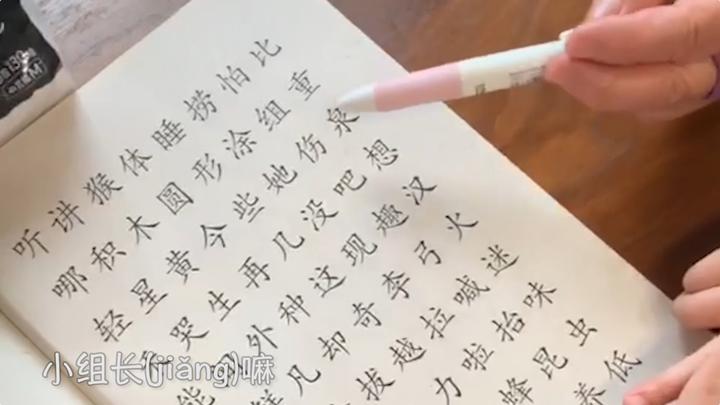 听讲猴体睡捞怕比
哪积木圆形涂组重
轻星黄今些她伤泉
哭生再几没吧想
能外种这现趣汉
鲜凡却奇李弓火
拔越拉喊迷
力啦抬味
蜂昆虫
养低
小组长(jiǎng)嘛